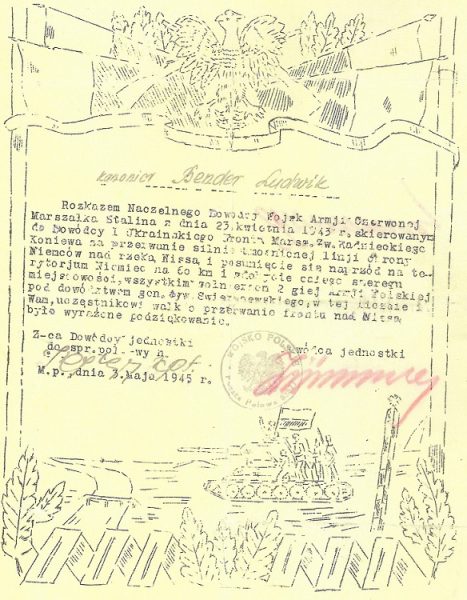 kanonier Bender Ludwik
Rozkazem Naczelnego Dowódcy Wojsk Armji Czerwonej
Marszałka Stalina z dnia 23.kwietnia 1945 r, skierowanym
do Dowódcy I Ukraińskiego Frontu Marsz. Zw. Radzieckiego
Koniewa na przerwanie silnie umocnionej linji obrony
Niemców nad rzeką Nissą i posunięcie się naprzód na te-
rytorjum Niemiec na 60 km i zdobycie całego szeregu
miejscowości, wszystkim żołnierzom 2 giej Armji Polskiej
pod dowództwem gen. dyw. Świerczewskiego, w tej liczbie i
Wam, uczestnikowi walk o przerwanie frontu nad Nissą
było wyrażone podziękowanie.
Z-ca Dowódcy jednostki
do spr. pol.-wy h.
Dowódca jednostki
WOJSKO POLSKIE
Poczta Polowa
M.p., dnia 3 maja 1945 r.